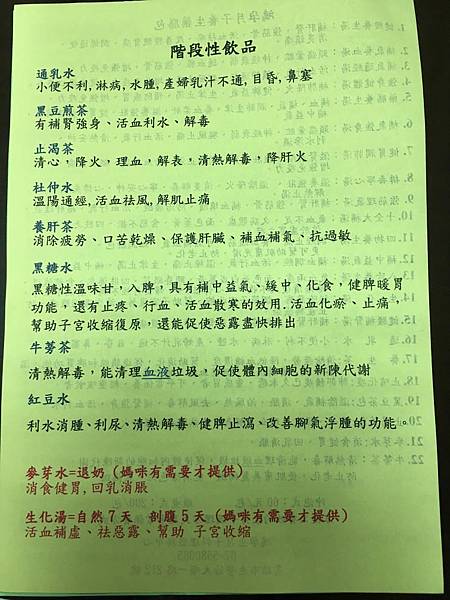 階段性飲品
通乳水
小便不利,淋病,水腫,產婦乳汁不通,目昏,鼻塞
黑豆煎茶
有補腎強身、活血利水、解毒
止渴茶
清心,降火,理血,解表,清熱解毒,降肝火
杜仲水
溫陽通經,活血祛風,解肌止痛
養肝茶
消除疲勞、口苦乾燥、保護肝臟、補血補氣、抗過敏
黑糖水
黑糖性溫味甘,入脾,具有補中益氣、緩中、化食,健脾暖胃
功能,還有止疼、行血、活血散寒的效用.活血化瘀、止痛,
幫助子宮收縮復原,還能促使惡露盡快排出
牛蒡茶
清熱解毒,能清理血液垃圾,促使體內細胞的新陳代謝
紅豆水
利水消腫、利尿、清熱解毒、健脾止瀉、改善腳氣浮腫的功能。
麥芽水=退奶 (媽咪有需要才提供)
消食健胃,回乳消脹
生化湯=自然7天 剖腹5天 (媽咪有需要才提供)
活血補虛、祛惡露、幫助 子宮收縮